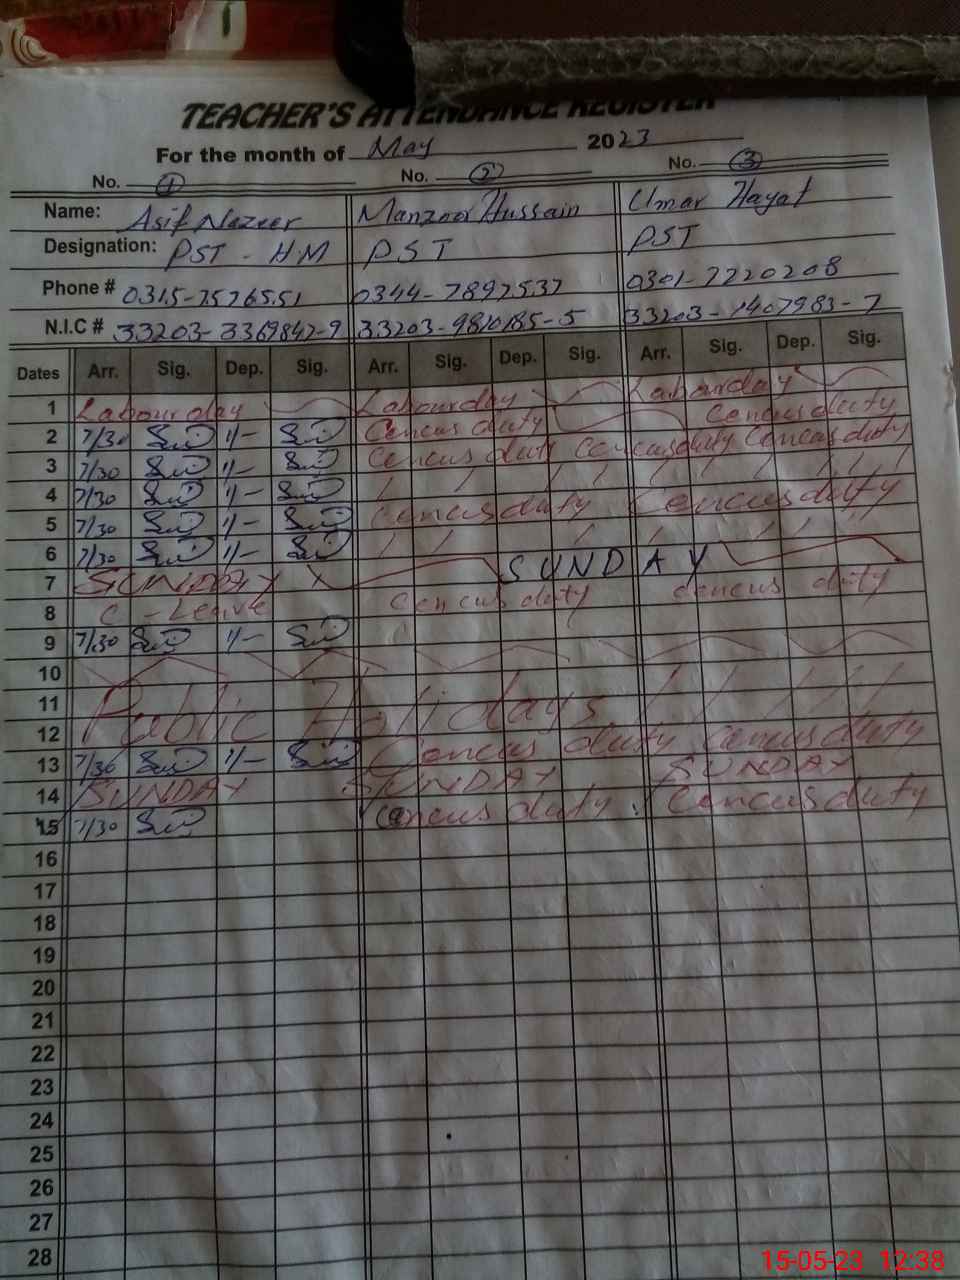 TEACHER'S ATTENDANCE REGISTER
For the month of May 2023
No. 1 No. 2 No. 3
Name: Asif Nazeer Manzoor Hussain Umar Hayat
Designation: PST - HM PST PST
Phone # 0315-7576551 0344-7897537 0301-7220208
N.I.C # 33203-3369847-9 33203-9810185-5 33203-1407983-7
Dates Arr. Sig. Dep. Sig. Arr. Sig. Dep. Sig. Arr. Sig. Dep. Sig.
1 Labour day Labourday Labourday
2 7/30 1/- Cencus duty Cencus duty
3 7/30 1/- Cencus duty Cencusduty Cencus duty
4 7/30 1/-
5 7/30 1/- Cencus duty Cencus duty
6 7/30 1/-
7 SUNDAY SUNDAY
8 C - Leave Cencus duty cencus duty
9 7/30 1/-
10
11 Public Holidays
12
13 7/30 1/- Cencus duty Cencus duty
14 SUNDAY SUNDAY SUNDAY
15 7/30 Cencus duty Cencus duty
16
17
18
19
20
21
22
23
24
25
26
27
28
15-05-23 12:38